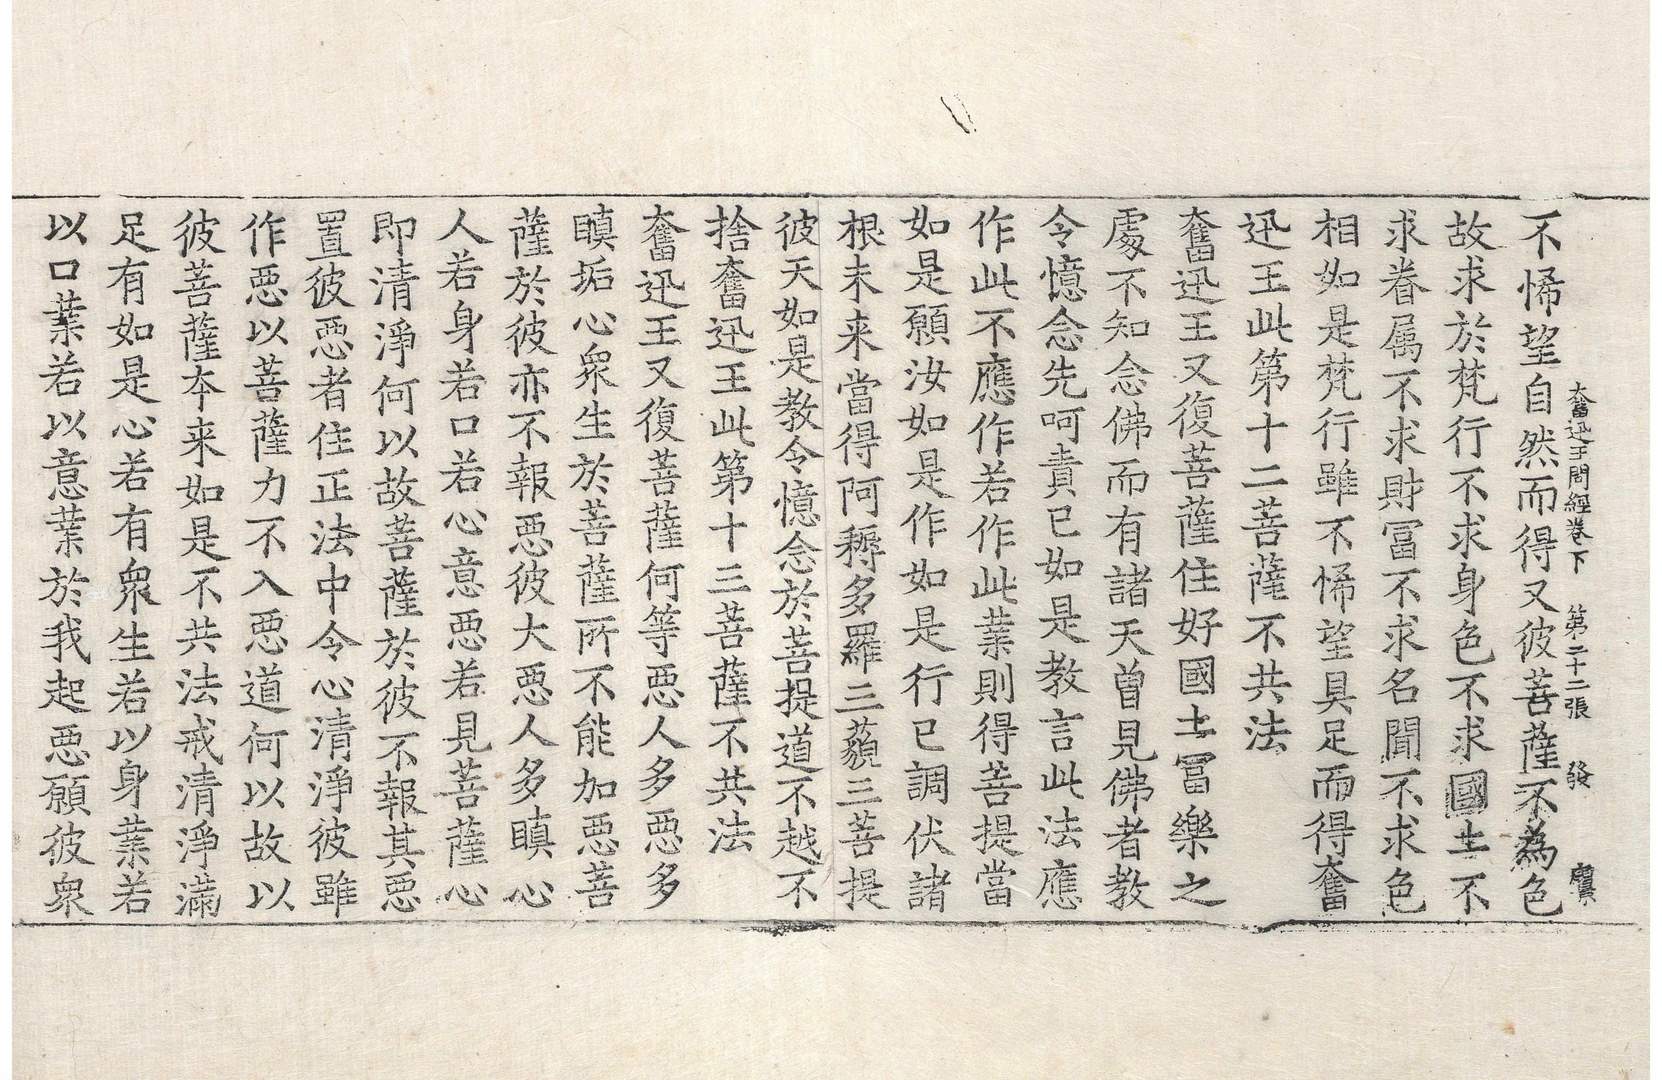 奮迅王問經卷下　第二十二張　發
不悕望自然而得又彼菩薩不為色
故求於梵行不求身色不求國土不
求眷属不求財冨不求名聞不求色
相如是梵行雖不悕望具足而得奮
迅王此第十二菩薩不共法
奮迅王又復菩薩住好國土冨樂之
處不知念佛而有諸天曾見佛者教
令憶念先呵責已如是教言此法應
作此不應作若作此業則得菩提當
如是願汝如是作如是行已調伏諸
根未来當得阿耨多羅三藐三菩提
彼天如是教令憶念於菩提道不越不
捨奮迅王此第十三菩薩不共法
奮迅王又復菩薩何等惡人多惡多
瞋垢心衆生於菩薩所不能加惡菩
薩於彼亦不報惡彼大惡人多瞋心
人若身若口若心意惡若見菩薩心
即清淨何以故菩薩於彼不報其惡
置彼惡者住正法中令心清淨彼雖
作惡以菩薩力不入惡道何以故以
彼菩薩本来如是不共法戒清淨滿
足有如是心若有衆生若以身業若
以口業若以意業於我起惡願彼衆